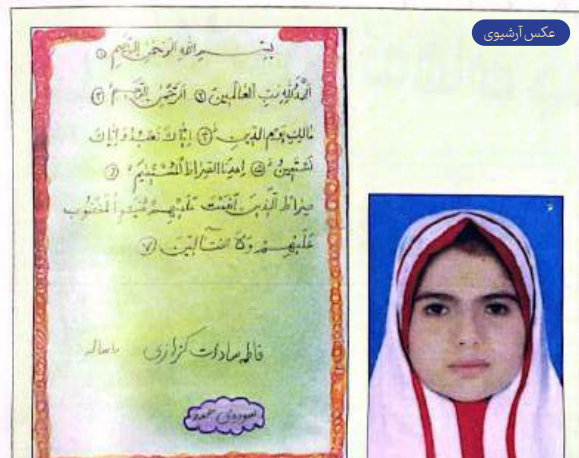 عکس آرشیوی
بِسْمِ اللهِ الرَّحْمٰنِ الرَّحیمِ ①
اَلْحَمْدُلِلّٰهِ رَبِّ الْعَالَمینَ ② اَلرَّحْمٰنِ الرَّحیمِ ③
مَالِكِ يَوْمِ الدّينِ ④ اِيَّاكَ نَعْبُدُ وَ اِيَّاكَ
نَسْتَعينُ ⑤ اِهْدِنَا الصِّرَاطَ الْمُسْتَقيمَ ⑥
صِرَاطَ الَّذينَ اَنْعَمْتَ عَلَيْهِمْ غَيْرِ الْمَغْضُوبِ
عَلَيْهِمْ وَ لَا الضَّآلّينَ ⑦
فاطمه سادات کزازی ساله
سوره‌ی حمد